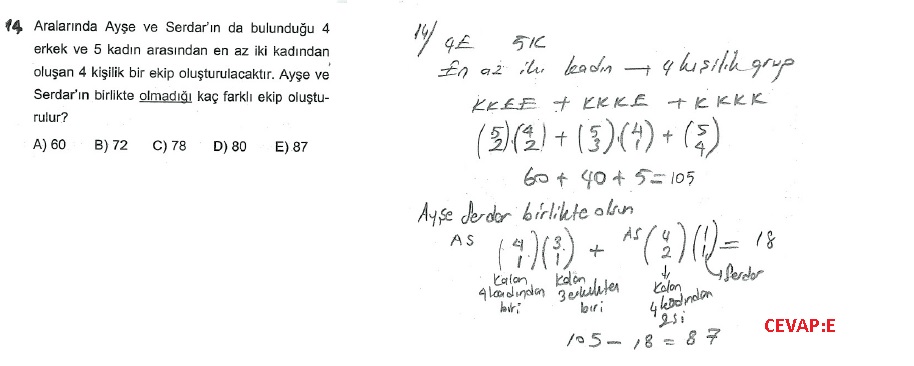 14. Aralarında Ayşe ve Serdar'ın da bulunduğu 4
erkek ve 5 kadın arasından en az iki kadından
oluşan 4 kişilik bir ekip oluşturulacaktır. Ayşe ve
Serdar'ın birlikte olmadığı kaç farklı ekip oluştu-
rulur?
A) 60 B) 72 C) 78 D) 80 E) 87
14/ 4E 5K
En az iki kadın → 4 kişilik grup
KKEE + KKKE + KKKK
(5 2)(4 2) + (5 3)·(4 1) + (5 4)
60 + 40 + 5 = 105
Ayşe Serdar birlikte olsun
AS (4 1)(3 1) + AS (4 2)(1 1) = 18
Kalan 4 kadından biri
Kalan 3 erkekten biri
↓ Kalan 4 kadından 2si
→ Serdar
105 - 18 = 87
CEVAP:E